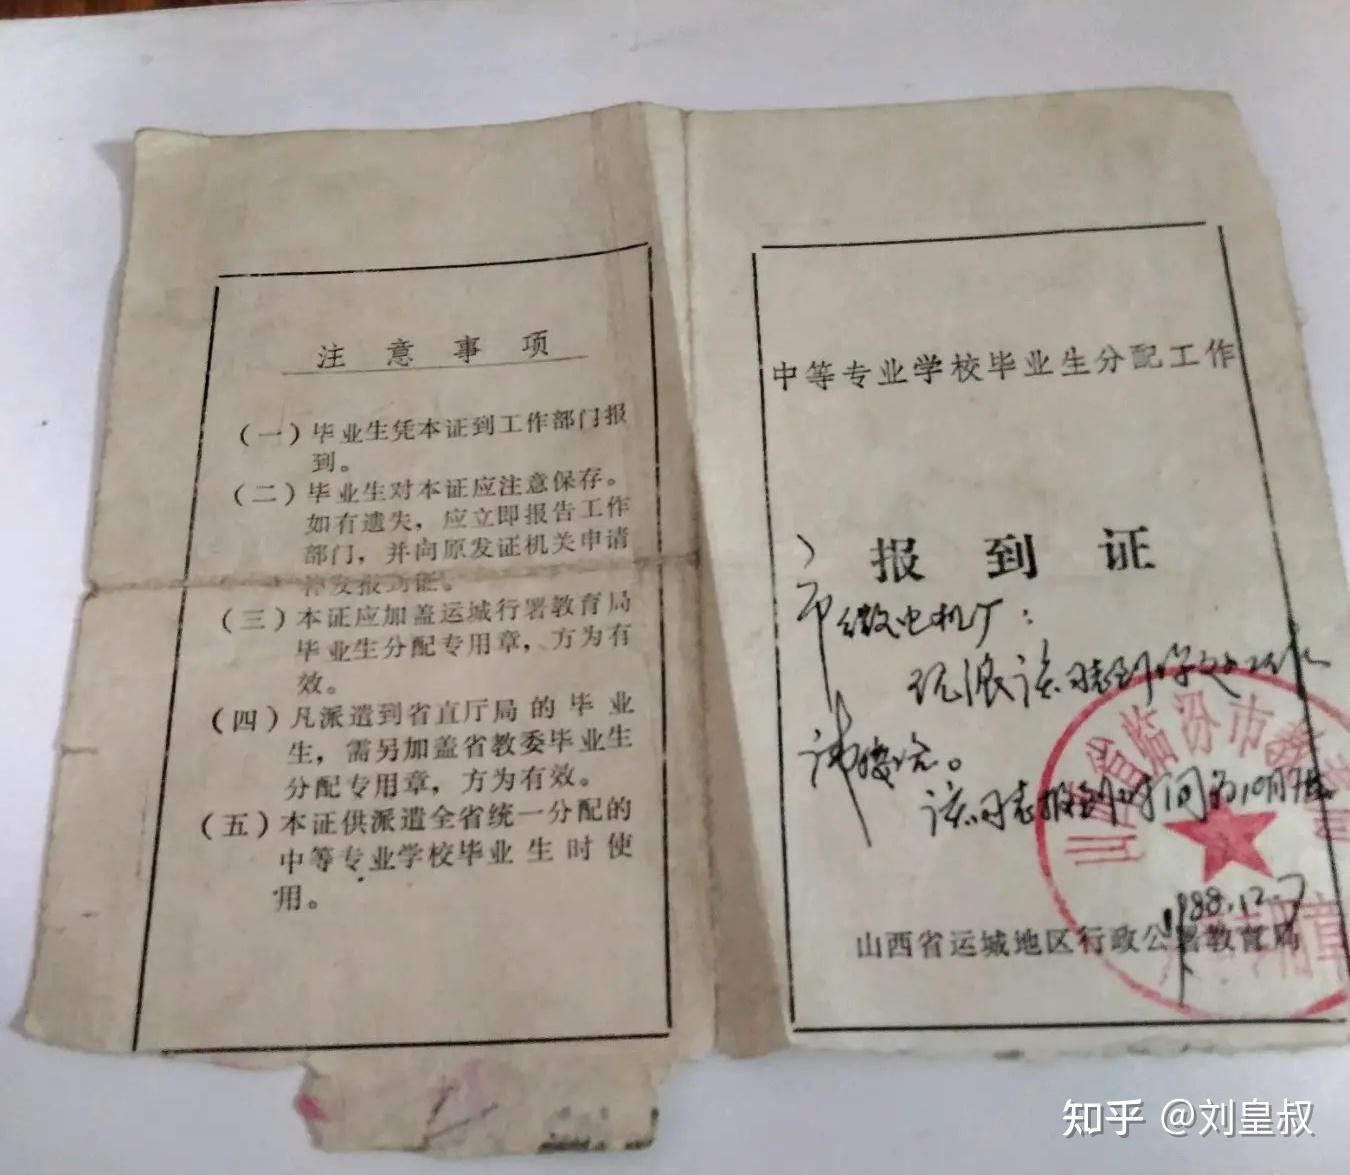 注意事项
（一）毕业生凭本证到工作部门报
到。
（二）毕业生对本证应注意保存。
如有遗失，应立即报告工作
部门，并向原发证机关申请
补发报到证。
（三）本证应加盖运城行署教育局
毕业生分配专用章，方为有
效。
（四）凡派遣到省直厅局的毕业
生，需另加盖省教委毕业生
分配专用章，方为有效。
（五）本证供派遣全省统一分配的
中等专业学校毕业生时使
用。
中等专业学校毕业生分配工作
报到证
市微电机厂：
现派该同志到你处工作
请接洽。
该同志报到时间为10月7日
1988.12.7
山西省运城地区行政公署教育局
山西省临汾市教育
专用章
知乎 @刘皇叔